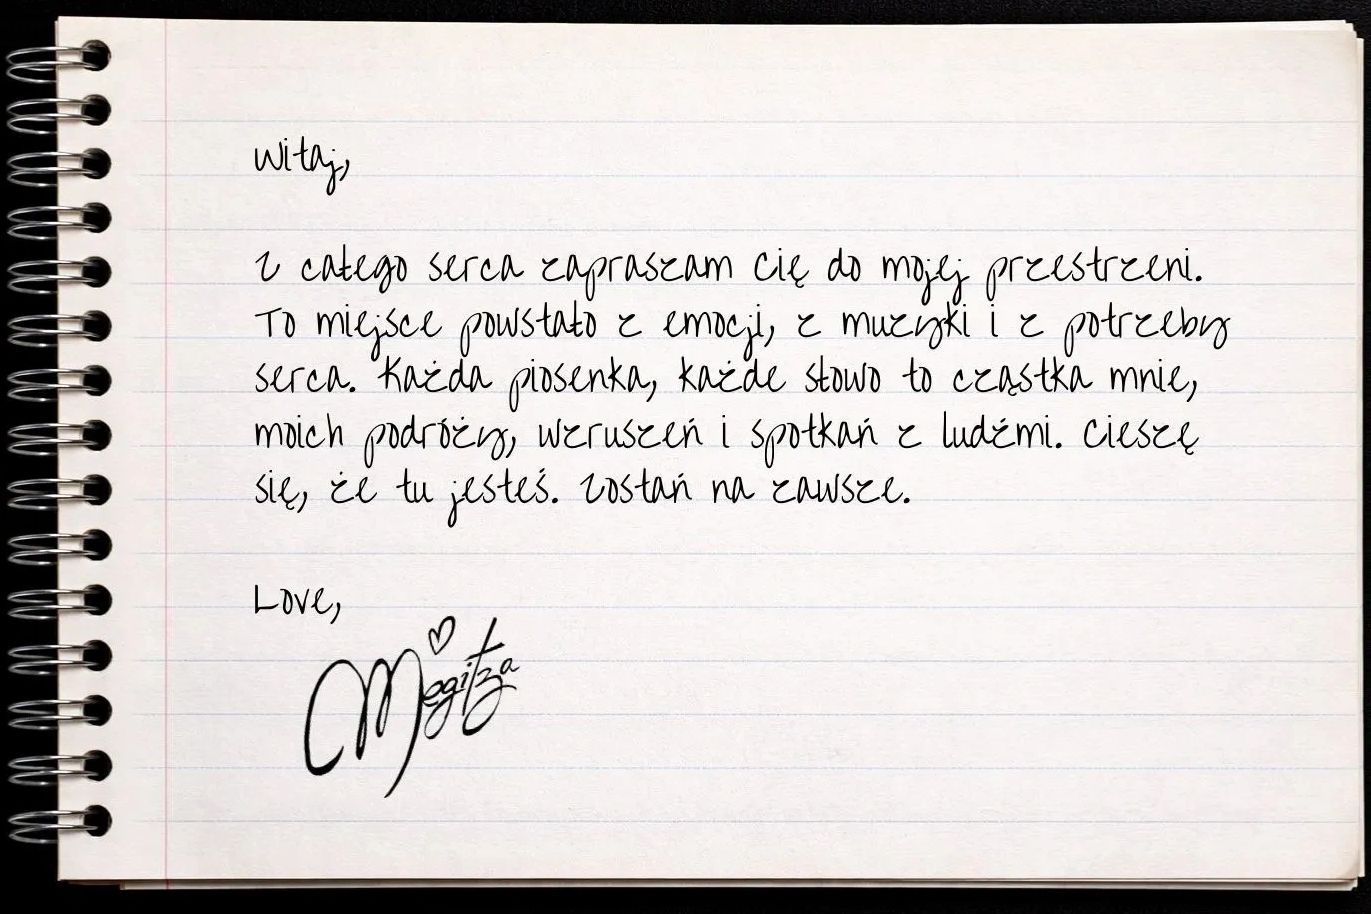 Witaj,
Z całego serca zapraszam Cię do mojej przestrzeni.
To miejsce powstało z emocji, z muzyki i z potrzeby
serca. Każda piosenka, każde słowo to cząstka mnie,
moich podróży, wzruszeń i spotkań z ludźmi. Cieszę
się, że tu jesteś. Zostań na zawsze.
Love,
Megitza